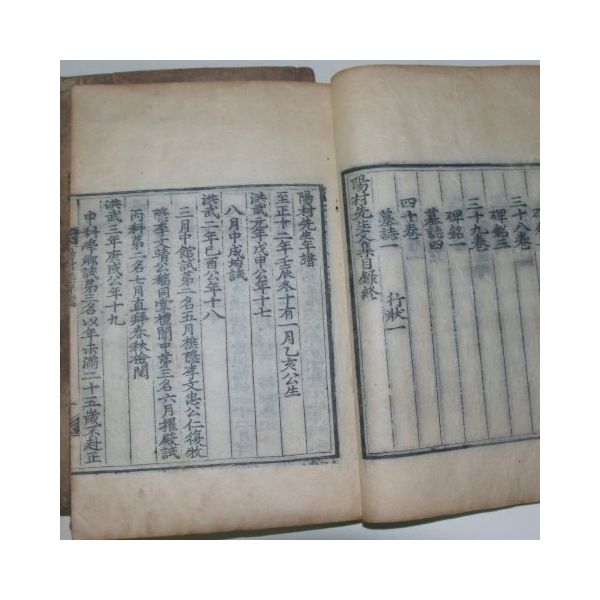 碑銘二
三十八卷
碑銘三
三十九卷
墓誌四
四十卷
墓誌一 行狀一
陽村先生文集目錄終
陽村先生年譜
至正十二年壬辰冬十有一月乙亥公生
洪武元年戊申公年十七
八月中成均試
洪武二年己酉公年十八
三月中館試第二名五月樵隱李文忠公仁復牧
隱李文靖公穡同掌禮闈中第三名六月擢殿試
丙科第二名七月直拜春秋檢閱
洪武三年庚戌公年十九
中科擧鄕試第三名以年未滿二十五歲不赴正